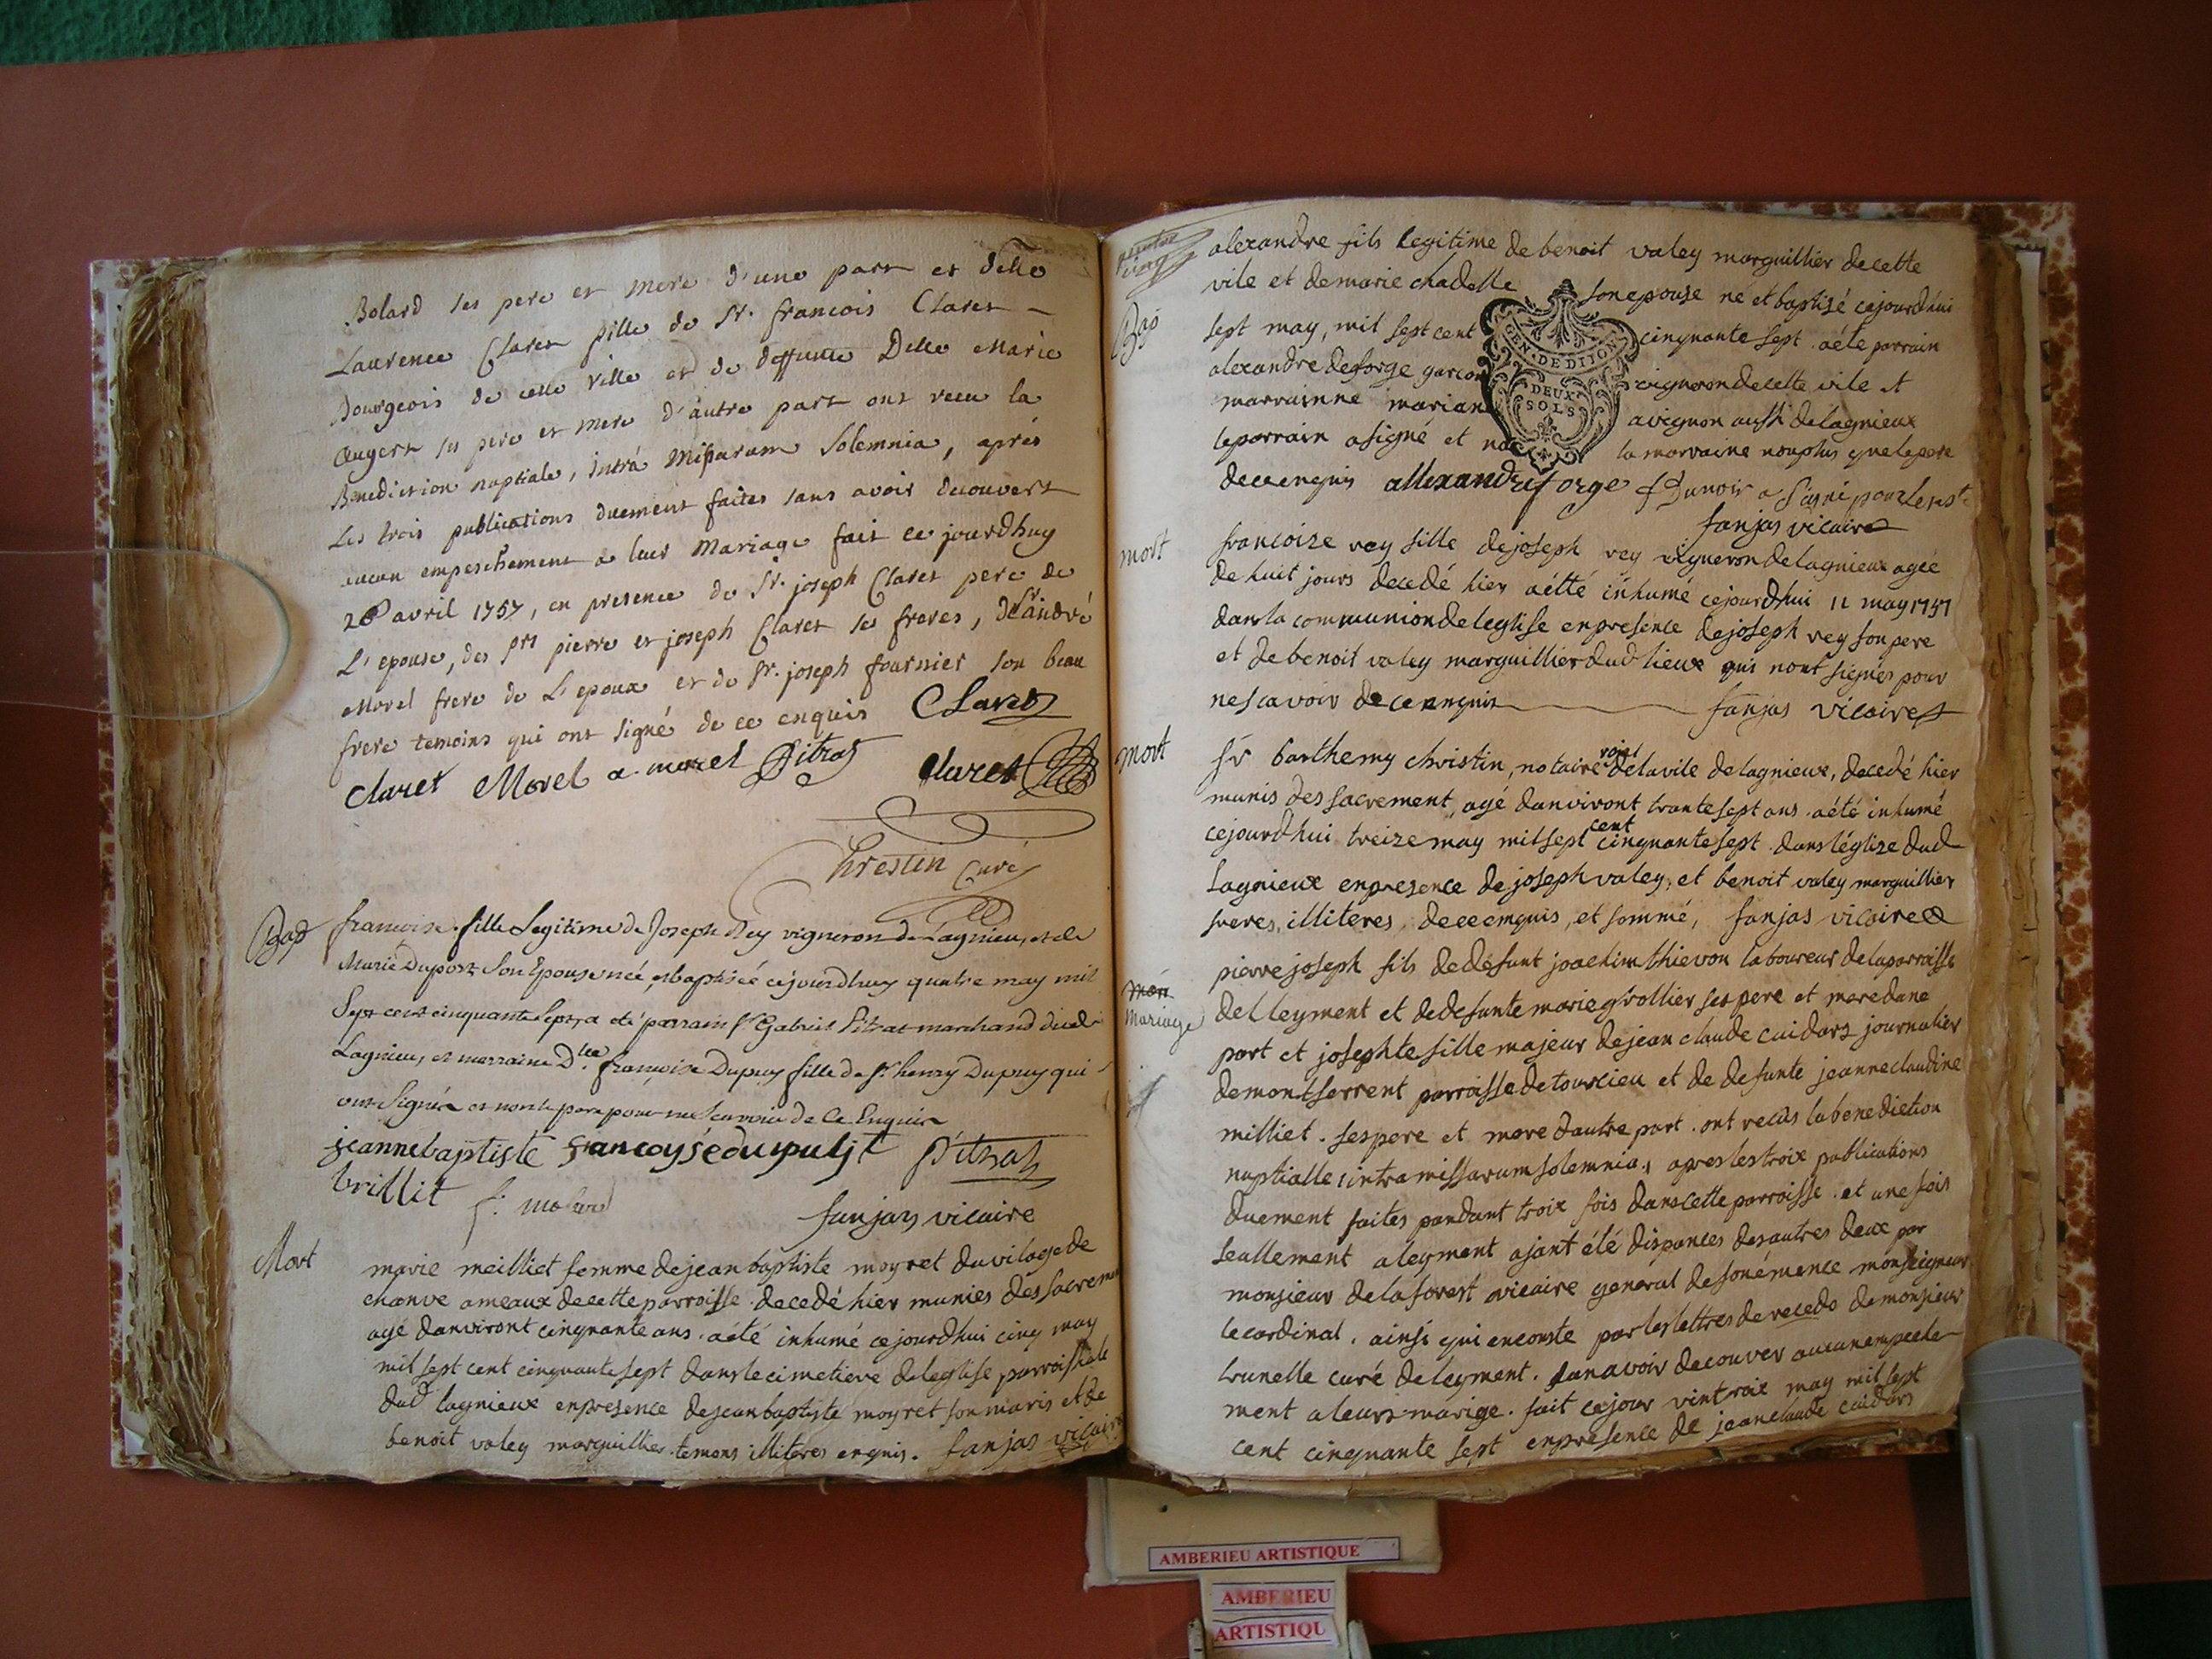 Bolard ses pere et mere d'une part et delle
Laurence Claret fille de Sr. francois Claret
Bourgeois de cette ville et de deffunte Delle Marie
Augert ses pere et mere d'autre part ont receu la
Benediction nuptiale, intrà Missarum Solemnia, aprés
Les trois publications duement faites sans avoir decouvert
aucun empeschement a leur Mariage fait ce jourdhuy
26 avril 1757, en presence de Sr. joseph Claret pere de
L'epouse, des srs pierre et joseph Claret ses freres, de Sr andré
Morel frere de L'epoux et de Sr. joseph fournier son beau
frere temoins qui ont signé de ce enquis Claret
Claret Morel a. morel Pitrat Claret
Chrestin Curé
Bap
francoise fille Legitime de Joseph Rey vigneron de Lagnieu, et de
Marie Duport Son Epouse née et baptisée cejourdhuy quatre may mil
Sept cent cinquante Sept, a eté parrain Sr Gabriel Pitrat marchand dud.
Lagnieu, et marraine Dlle francoise Dupuy fille de Sr henry Dupuy qui
ont Signés et non le pere pour ne scavoir de Ce Enquis
jeannebaptiste francoyse dupuijt Pitrat
brillit
fanjas vicaire
Mort
marie meilliet femme de jean baptiste moyret du vilage de
chanve ameaux de cette parroisse decedé hier munies des sacremen
agé danviront cinquante ans a été inhumé ce jourdhui cinq may
mil sept cent cinquante sept dans le cimetiere de leglise parroissiale
dud lagnieux en presence de jean baptiste moyret son maris et de
benoit valey marguillier temons illiteres enquis. fanjas vicaire
Bap
alexandre fils legitime de benoit valey marguillier de cette
vile et de marie chadelle son epouse né et baptisé cejourdhui
sept may, mil sept cent cinquante sept a été parrain
alexandre deforge garcon vigneron de cette vile et
marrainne marian avignon aussi de lagnieux
le parrain a signé et no la marraine non plus que le pere
de ce enquis allexandre forge
fanjas vicaire
GEN. DE DIJON
DEUX
SOLS
mort
francoise rey fille de joseph rey vigneron de lagnieux agée
de huit jours decedé hier a étté inhumé cejourdhui 11 may 1757
dans la communion de leglise en presence de joseph rey son pere
et de benoit valey marguillier dud lieux qui nont signés pour
ne scavoir de ce enquis fanjas vicaire
mort
Sr barthemy christin, notaire royal de la vile de lagnieux, decedé hier
munis des sacrement agé danviront trante sept ans a été inhumé
cejourdhui treize may mil sept cent cinquante sept dans léglize dud
lagnieux en presence de joseph valey, et benoit valey marguillier
freres, illiteres, de ce enquis, et sommé, fanjas vicaire
Mariage
pierre joseph fils de défunt joachim thievon laboureur de la parroisse
de lleyment et de defunte marie grollier ses pere et mere dune
part et josephte fille majeur de jean claude cuidars journalier
de montferrent parroisse de tourcieu et de defunte jeanne claudine
milliet ses pere et mere dautre part ont recûs la benediction
nuptialle intra missarum solemnia, apres les troix publications
duement faites pandant troix fois dans cette parroisse et une fois
seullement a leyment ajant été dispances des autres deux par
monsieur de la forest vicaire general de son émence monseigneur
le cardinal. ainsi qui enconste par les lettres de recedo de monsieur
brunelle curé de leyment. san avoir decouver aucun empeche
ment a leurs marige. fait cejour vintroix may mil sept
cent cinquante sept en presence de jean claude cuidars
AMBERIEU ARTISTIQUE
AMBERIEU
ARTISTIQU